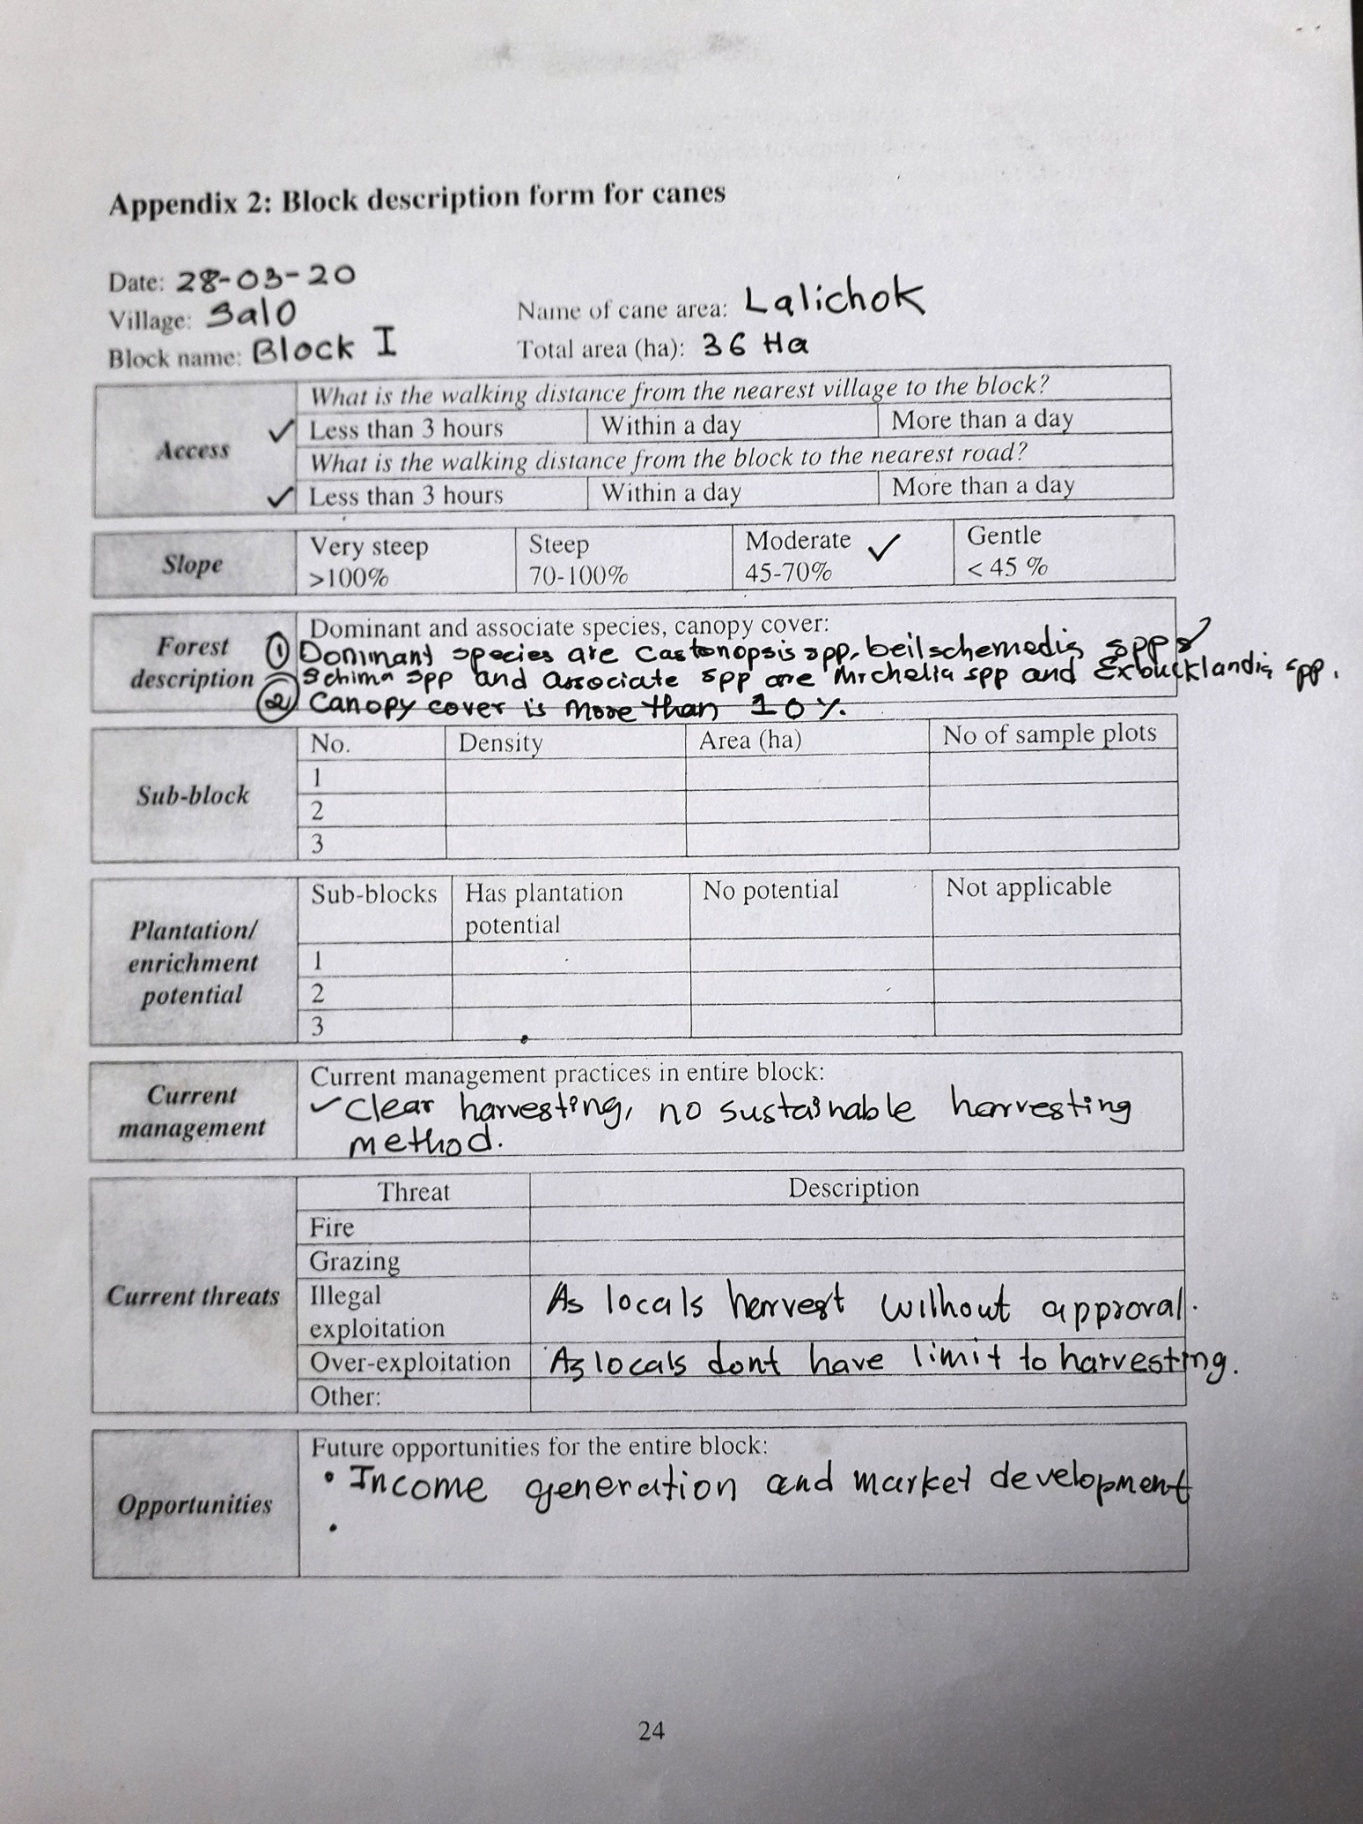 Appendix 2: Block description form for canes
Date: 28-03-20
Village: Salo
Name of cane area: Lalichok
Block name: Block I
Total area (ha): 36 Ha
Access
What is the walking distance from the nearest village to the block?
✓ Less than 3 hours Within a day More than a day
What is the walking distance from the block to the nearest road?
✓ Less than 3 hours Within a day More than a day
Slope
Very steep Steep Moderate ✓ Gentle
>100% 70-100% 45-70% < 45 %
Forest description
Dominant and associate species, canopy cover:
① Dominant species are Castonopsis spp, beilschemedia spp &
Schima spp and associate spp are Michelia spp and Exbucklandia spp.
② Canopy cover is more than 10%.
Sub-block
No. Density Area (ha) No of sample plots
1
2
3
Plantation/
enrichment
potential
Sub-blocks Has plantation No potential Not applicable
potential
1
2
3
Current
management
Current management practices in entire block:
✓ Clear harvesting, no sustainable harvesting
method.
Current threats
Threat Description
Fire
Grazing
Illegal
exploitation
As locals harvest without approval.
Over-exploitation As locals dont have limit to harvesting.
Other:
Opportunities
Future opportunities for the entire block:
• Income generation and market development
•
24